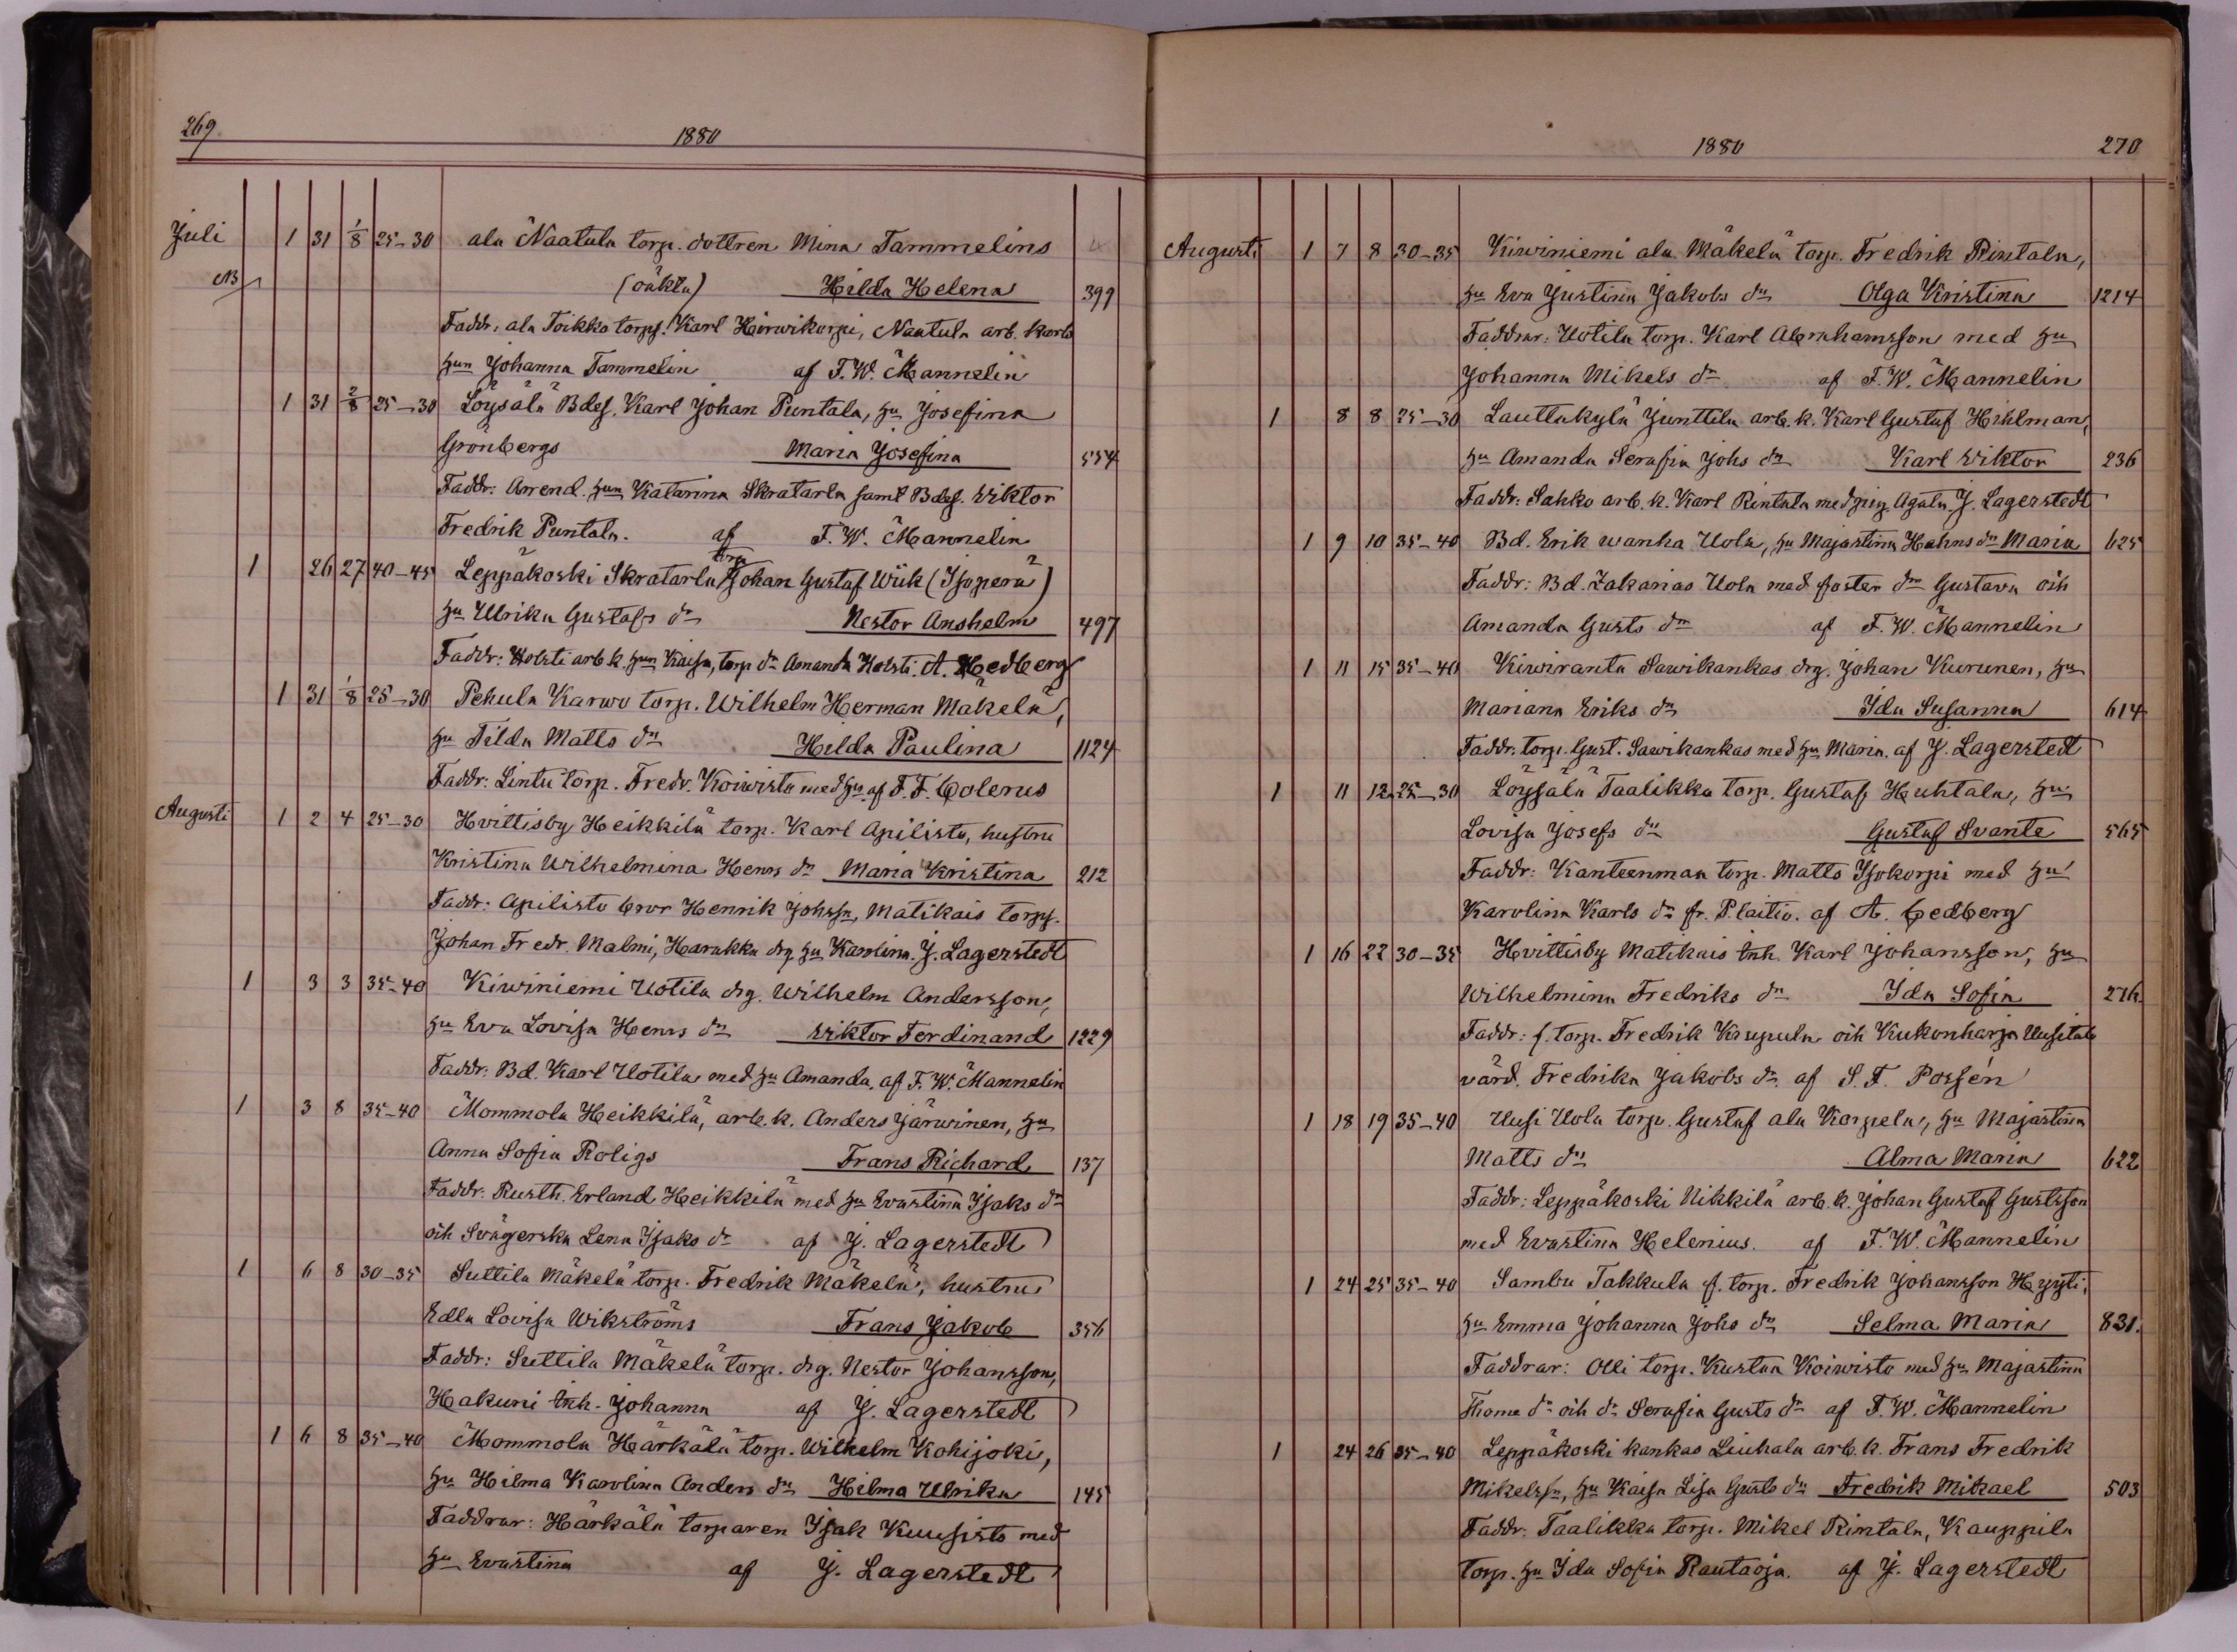 269
1880
Juli 1 31 1/8 25-30 ala Naatula torp. dottren Mina Tammelins
NB (oäkta) Hilda Helena 399
Faddr: ala Toikko torps. Karl Hirwikorpi, Naatula arb. karls
hun Johanna Tammelin af F.W. Mannelin
1 31 2/8 25-30 Loysälä Bdes. Karl Johan Puntala, hu Josefina
Grönbergs Maria Josefina 554
Faddr: Arrend. hun Katarina Skratarla samt Bdes. Wiktor
Fredrik Puntala. af F.W. Mannelin
1 26 27 40-45 Leppäkoski Skratarla torp Johan Gustaf Wiik (Isoperä)
hu Ulrika Gustafs dr Nestor Anshelm 497
Faddr: Holsti arb k. hun Kaisa, torp dr Amanda Holsti. A. Hedberg
1 31 1/8 25-30 Pekula Karwo torp. Wilhelm Herman Mäkelä,
hu Tilda Matts dr Hilda Paulina 1124
Faddr: Lintu torp. Fredr. Koiwisto med hu af F.F. Colerus
Augusti 1 2 4 25-30 Hvittisby Heikkilä torp. Karl Apilisto, hustru
Kristina Wilhelmina Henrs dr Maria Kristina 212
Faddr: Apilisto bror Henrik Johsn, Matikais torps.
Johan Fredr. Malmi, Harakka drg hu Karolina. J. Lagerstedt
1 3 3 35-40 Kiwiniemi Uotila drg. Wilhelm Andersson,
hu Eva Lovisa Henrs dr Wiktor Ferdinand 1229
Faddr: Bd. Karl Uotila med hu Amanda. af F.W. Mannelin
1 3 8 35-40 Mommola Heikkilä, arb. k. Anders Järwinen, hu
Anna Sofia Roligs Frans Richard 137
Faddr: Rusth. Erland Heikkilä med hu Evastina Isaks dr
och Svägerska Lena Isaks dr af J. Lagerstedt
1 6 8 30-35 Suttila Mäkelä torp. Fredrik Mäkelä, hustru
Edla Lovisa Wikströms Frans Jakob 356
Faddr: Suttila Mäkelä torp. drg. Nestor Johansson,
Hakuni inh. Johanna af J. Lagerstedt
1 6 8 35-40 Mommola Härkälä torp. Wilhelm Kohijoki,
hu Hilma Karolina Anders dr Hilma Ulrika 145
Faddrar: Härkälä torparen Isak Kuusisto med
hu Evastina af J. Lagerstedt
1880
270
Augusti 1 7 8 30-35 Kiwiniemi ala Mäkelä torp. Fredrik Rintala,
hu Eva Justina Jakobs dr Olga Kristina 1214
Faddrar: Uotila torp. Karl Abrahamsson med hu
Johanna Mikels dr af F.W. Mannelin
1 8 8 25-30 Lauttakylä Junttila arb. k. Karl Gustaf Hihlman,
hu Amanda Serafia Johs dr Karl Wiktor 236
Faddr: Sahko arb. k. Karl Rintala med pig. Agata. J. Lagerstedt
1 9 10 35-40 Bd. Erik wanha Uola, hu Majastina Hahns dr Maria 625
Faddr: Bd. Zakarias Uola med foster dr Gustava och
Amanda Gusts dr af F.W. Mannelin
1 11 15 35-40 Kiwiranta Sawikankas drg. Johan Kurunen, hu
Mariana Eriks dr Ida Susanna 614
Faddr: torp. Gust. Sawikankas med hu Maria. af J. Lagerstedt
1 11 12 25-30 Löysälä Taalikka torp. Gustaf Huhtala, hu
Lovisa Josefs dr Gustaf Svante 565
Faddr: Kanteenmaa torp. Matts Isokorpi med hu
Karolina Karls dr fr. P. laitio. af A. Cedberg
1 16 22 30-35 Hvittisby Matikais inh. Karl Johansson, hu
Wilhelmina Fredriks dr Ida Sofia 276
Faddr: f. torp. Fredrik Kaupula och Kukonharja Uusitalo
värd. Fredrika Jakobs dr. af S.F. Possén
1 18 19 35-40 Uusi Uola torp. Gustaf ala Karpela, hu Majastina
Matts dr Alma Maria 622
Faddr: Leppäkoski Nikkilä arb. k. Johan Gustaf Gustsson
med Evastina Helenius. af F.W. Mannelin
1 24 25 35-40 Sambu Takkula f. torp. Fredrik Johansson Hyyti,
hu Emma Johanna Johs dr Selma Maria 831.
Faddrar: Olli torp. Kustaa Koiwisto med hu Majastina
Thome dr och dr Serafia Gusts dr af F.W. Mannelin
1 24 26 35-40 Leppäkoski kankas Liuhala arb. k. Frans Fredrik
Mikelssn, hu Kaisa Lisa Gusts dr Fredrik Mikael 503
Faddr: Taalikka torp. Mikel Rintala, Kauppila
torp. hu Ida Sofia Rautaoja. af J. Lagerstedt